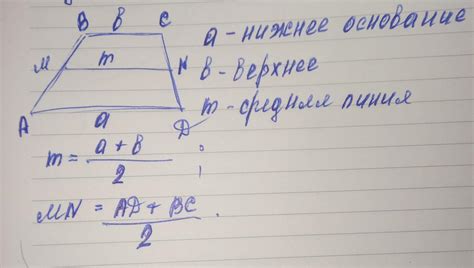 B b C
a - нижнее основание
M m N
b - верхнее
A a D
m - средняя линия
m = a + b / 2 ;
MN = AD + BC / 2 .